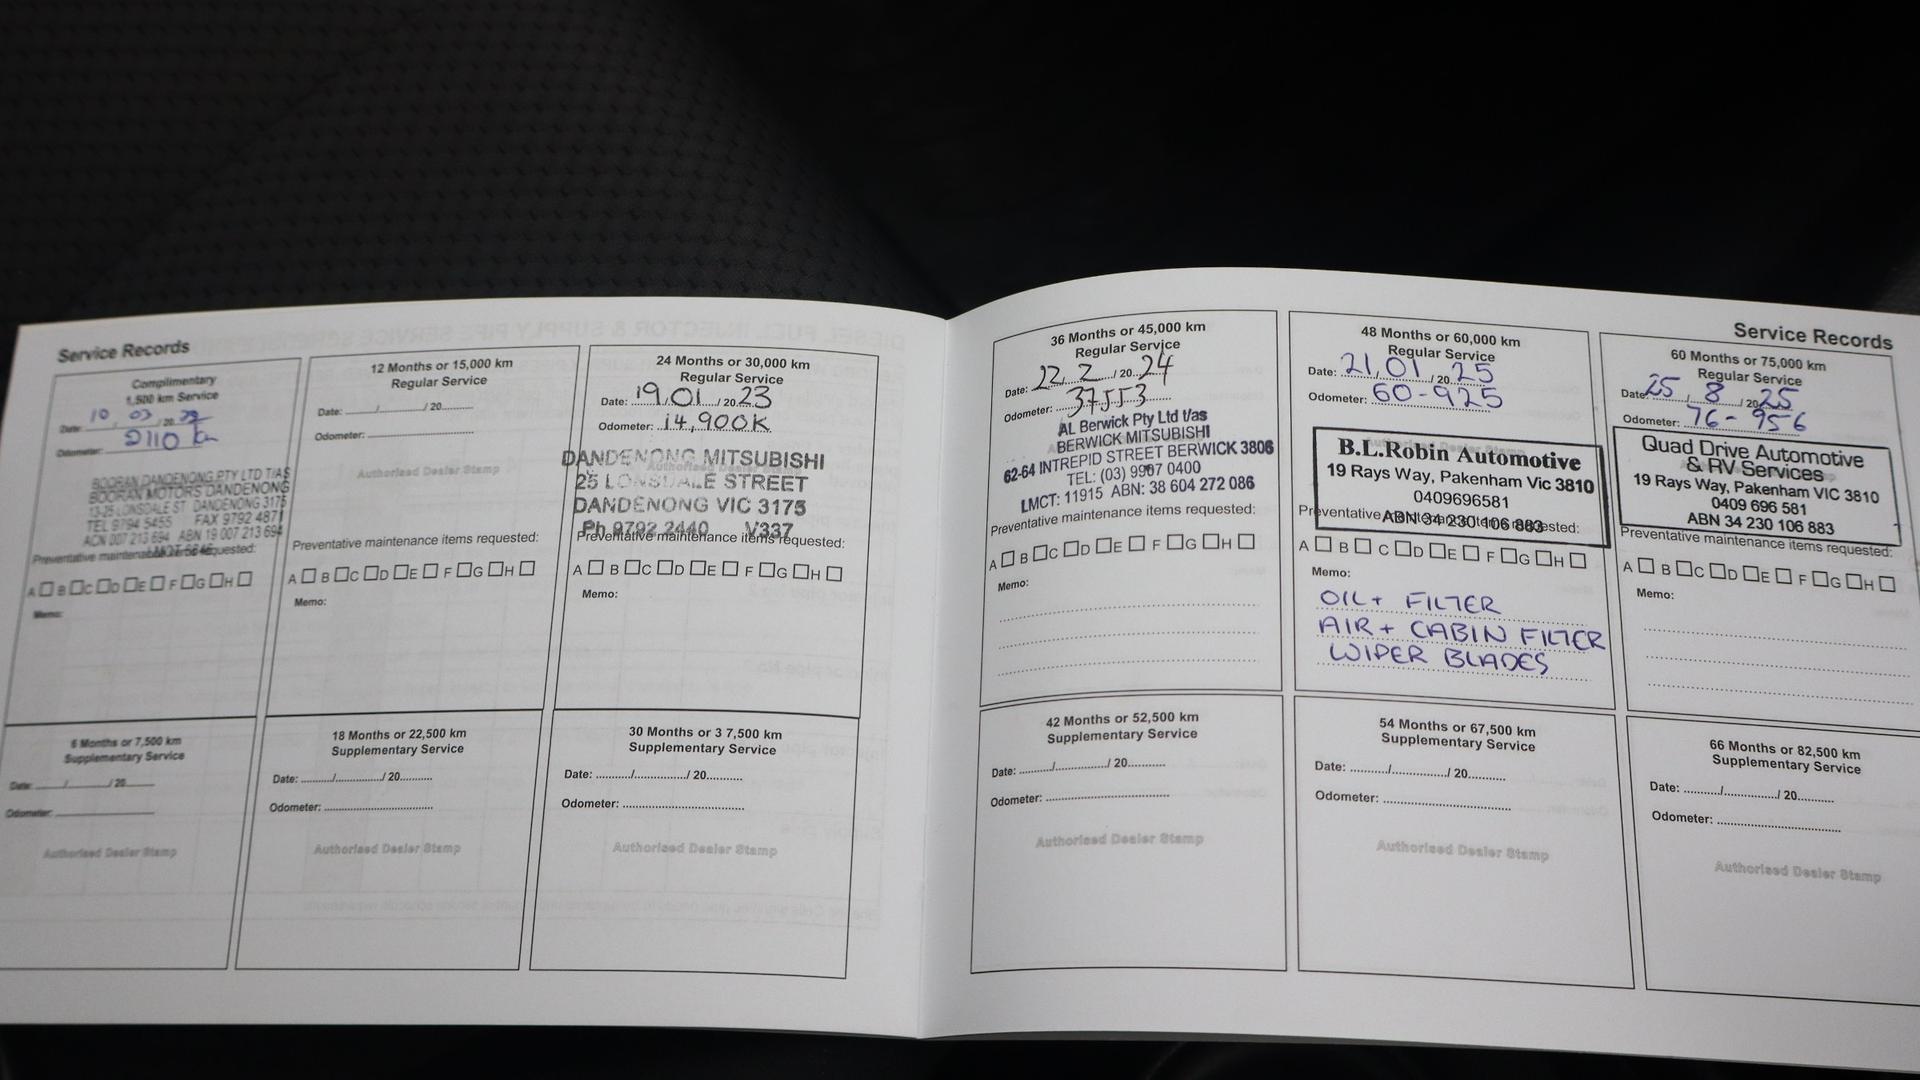 Service Records
Complimentary
1,500 km Service
Date: 10 / 03 / 20 22
Odometer: 2110 km
BOORAN DANDENONG PTY LTD T/AS
BOORAN MOTORS DANDENONG
13-25 LONSDALE ST DANDENONG 3175
TEL 9794 5455 FAX 9792 4871
ACN 007 213 694 ABN 19 007 213 694
Preventative maintenance items requested:
A B C D E F G H
Memo:
12 Months or 15,000 km
Regular Service
Date: ....../............/ 20..........
Odometer: ..............................
Authorised Dealer Stamp
Preventative maintenance items requested:
A B C D E F G H
Memo:
24 Months or 30,000 km
Regular Service
Date: 19/01/ 20 23
Odometer: 14,900K
DANDENONG MITSUBISHI
25 LONSDALE STREET
DANDENONG VIC 3175
Ph 9792 2440 V337
Preventative maintenance items requested:
A B C D E F G H
Memo:
6 Months or 7,500 km
Supplementary Service
Date: ....../............/ 20..........
Odometer: ..............................
Authorised Dealer Stamp
18 Months or 22,500 km
Supplementary Service
Date: ....../............/ 20..........
Odometer: ..............................
Authorised Dealer Stamp
30 Months or 3 7,500 km
Supplementary Service
Date: ....../............/ 20..........
Odometer: ..............................
Authorised Dealer Stamp
Service Records
36 Months or 45,000 km
Regular Service
Date: 22/2/ 20 24
Odometer: 37553
AL Berwick Pty Ltd t/as
BERWICK MITSUBISHI
62-64 INTREPID STREET BERWICK 3806
TEL: (03) 9967 0400
LMCT: 11915 ABN: 38 604 272 086
Preventative maintenance items requested:
A B C D E F G H
Memo:
48 Months or 60,000 km
Regular Service
Date: 21/01/ 20 25
Odometer: 60-925
Authorised Dealer Stamp
B.L.Robin Automotive
19 Rays Way, Pakenham Vic 3810
0409696581
ABN 34 230 106 883
Preventative maintenance items requested:
A B C D E F G H
Memo:
OIL + FILTER
AIR + CABIN FILTER
WIPER BLADES
60 Months or 75,000 km
Regular Service
Date: 25/ 8 / 20 25
Odometer: 76-956
Quad Drive Automotive
& RV Services
19 Rays Way, Pakenham VIC 3810
0409 696 581
ABN 34 230 106 883
Preventative maintenance items requested:
A B C D E F G H
Memo:
42 Months or 52,500 km
Supplementary Service
Date: ....../............/ 20..........
Odometer: ..............................
Authorised Dealer Stamp
54 Months or 67,500 km
Supplementary Service
Date: ....../............/ 20..........
Odometer: ..............................
Authorised Dealer Stamp
66 Months or 82,500 km
Supplementary Service
Date: ....../............/ 20..........
Odometer: ..............................
Authorised Dealer Stamp